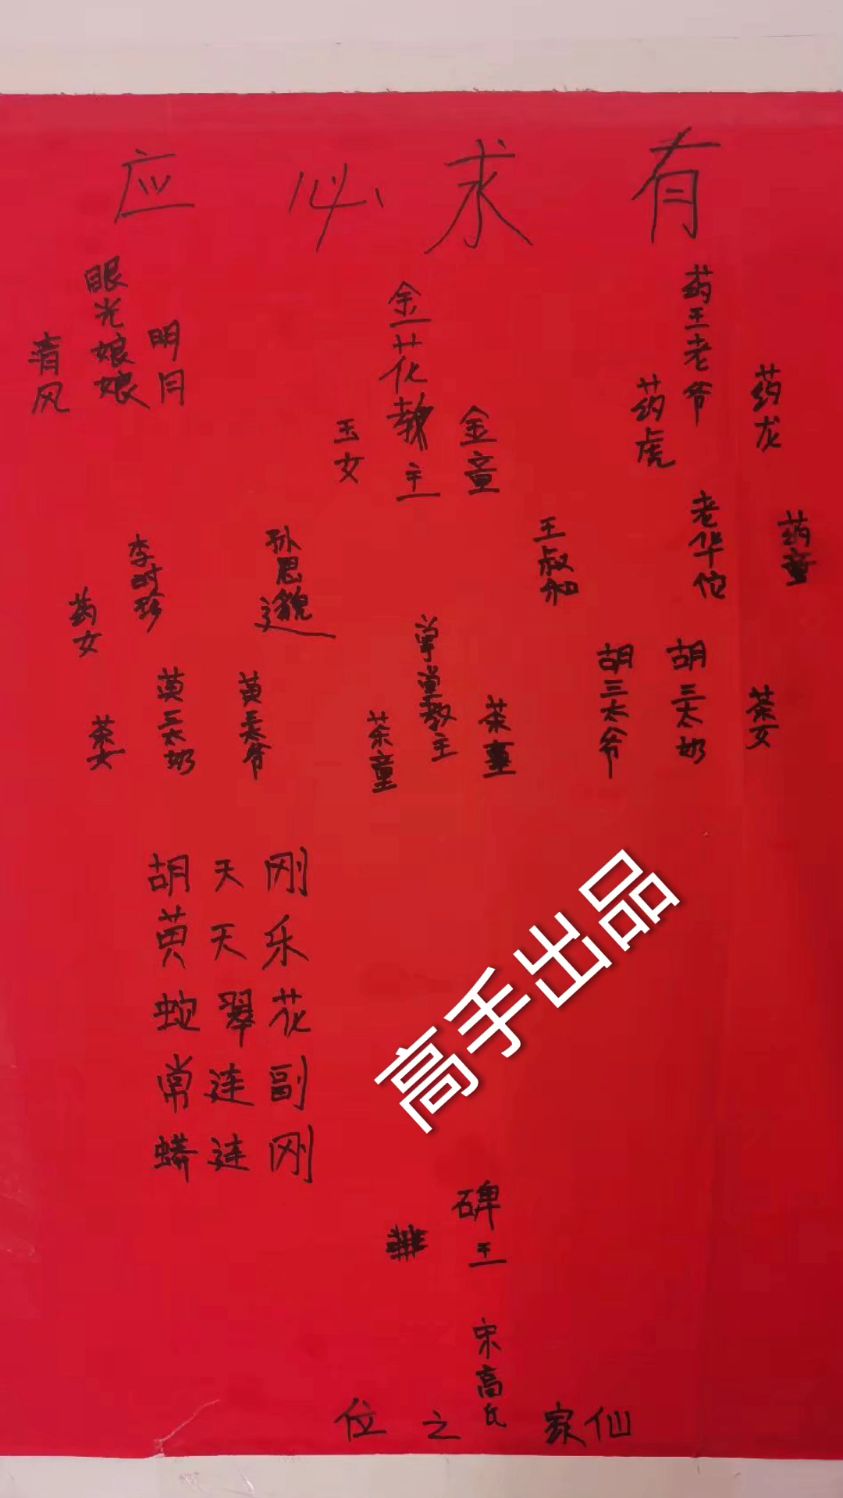 有求必应
药龙
药王老爷
药虎
金童
金花教主
玉女
明月
眼光娘娘
清风
药童
老华佗
王叔和
孙思邈
李时珍
药女
茶女
胡三太奶
胡三太爷
茶童
掌堂教主
茶童
黄三太爷
黄三太奶
茶女
胡天刚
黄天乐
蛇翠花
常连副
蟒连刚
高手出品
碑王
宋高氏
仙家之位